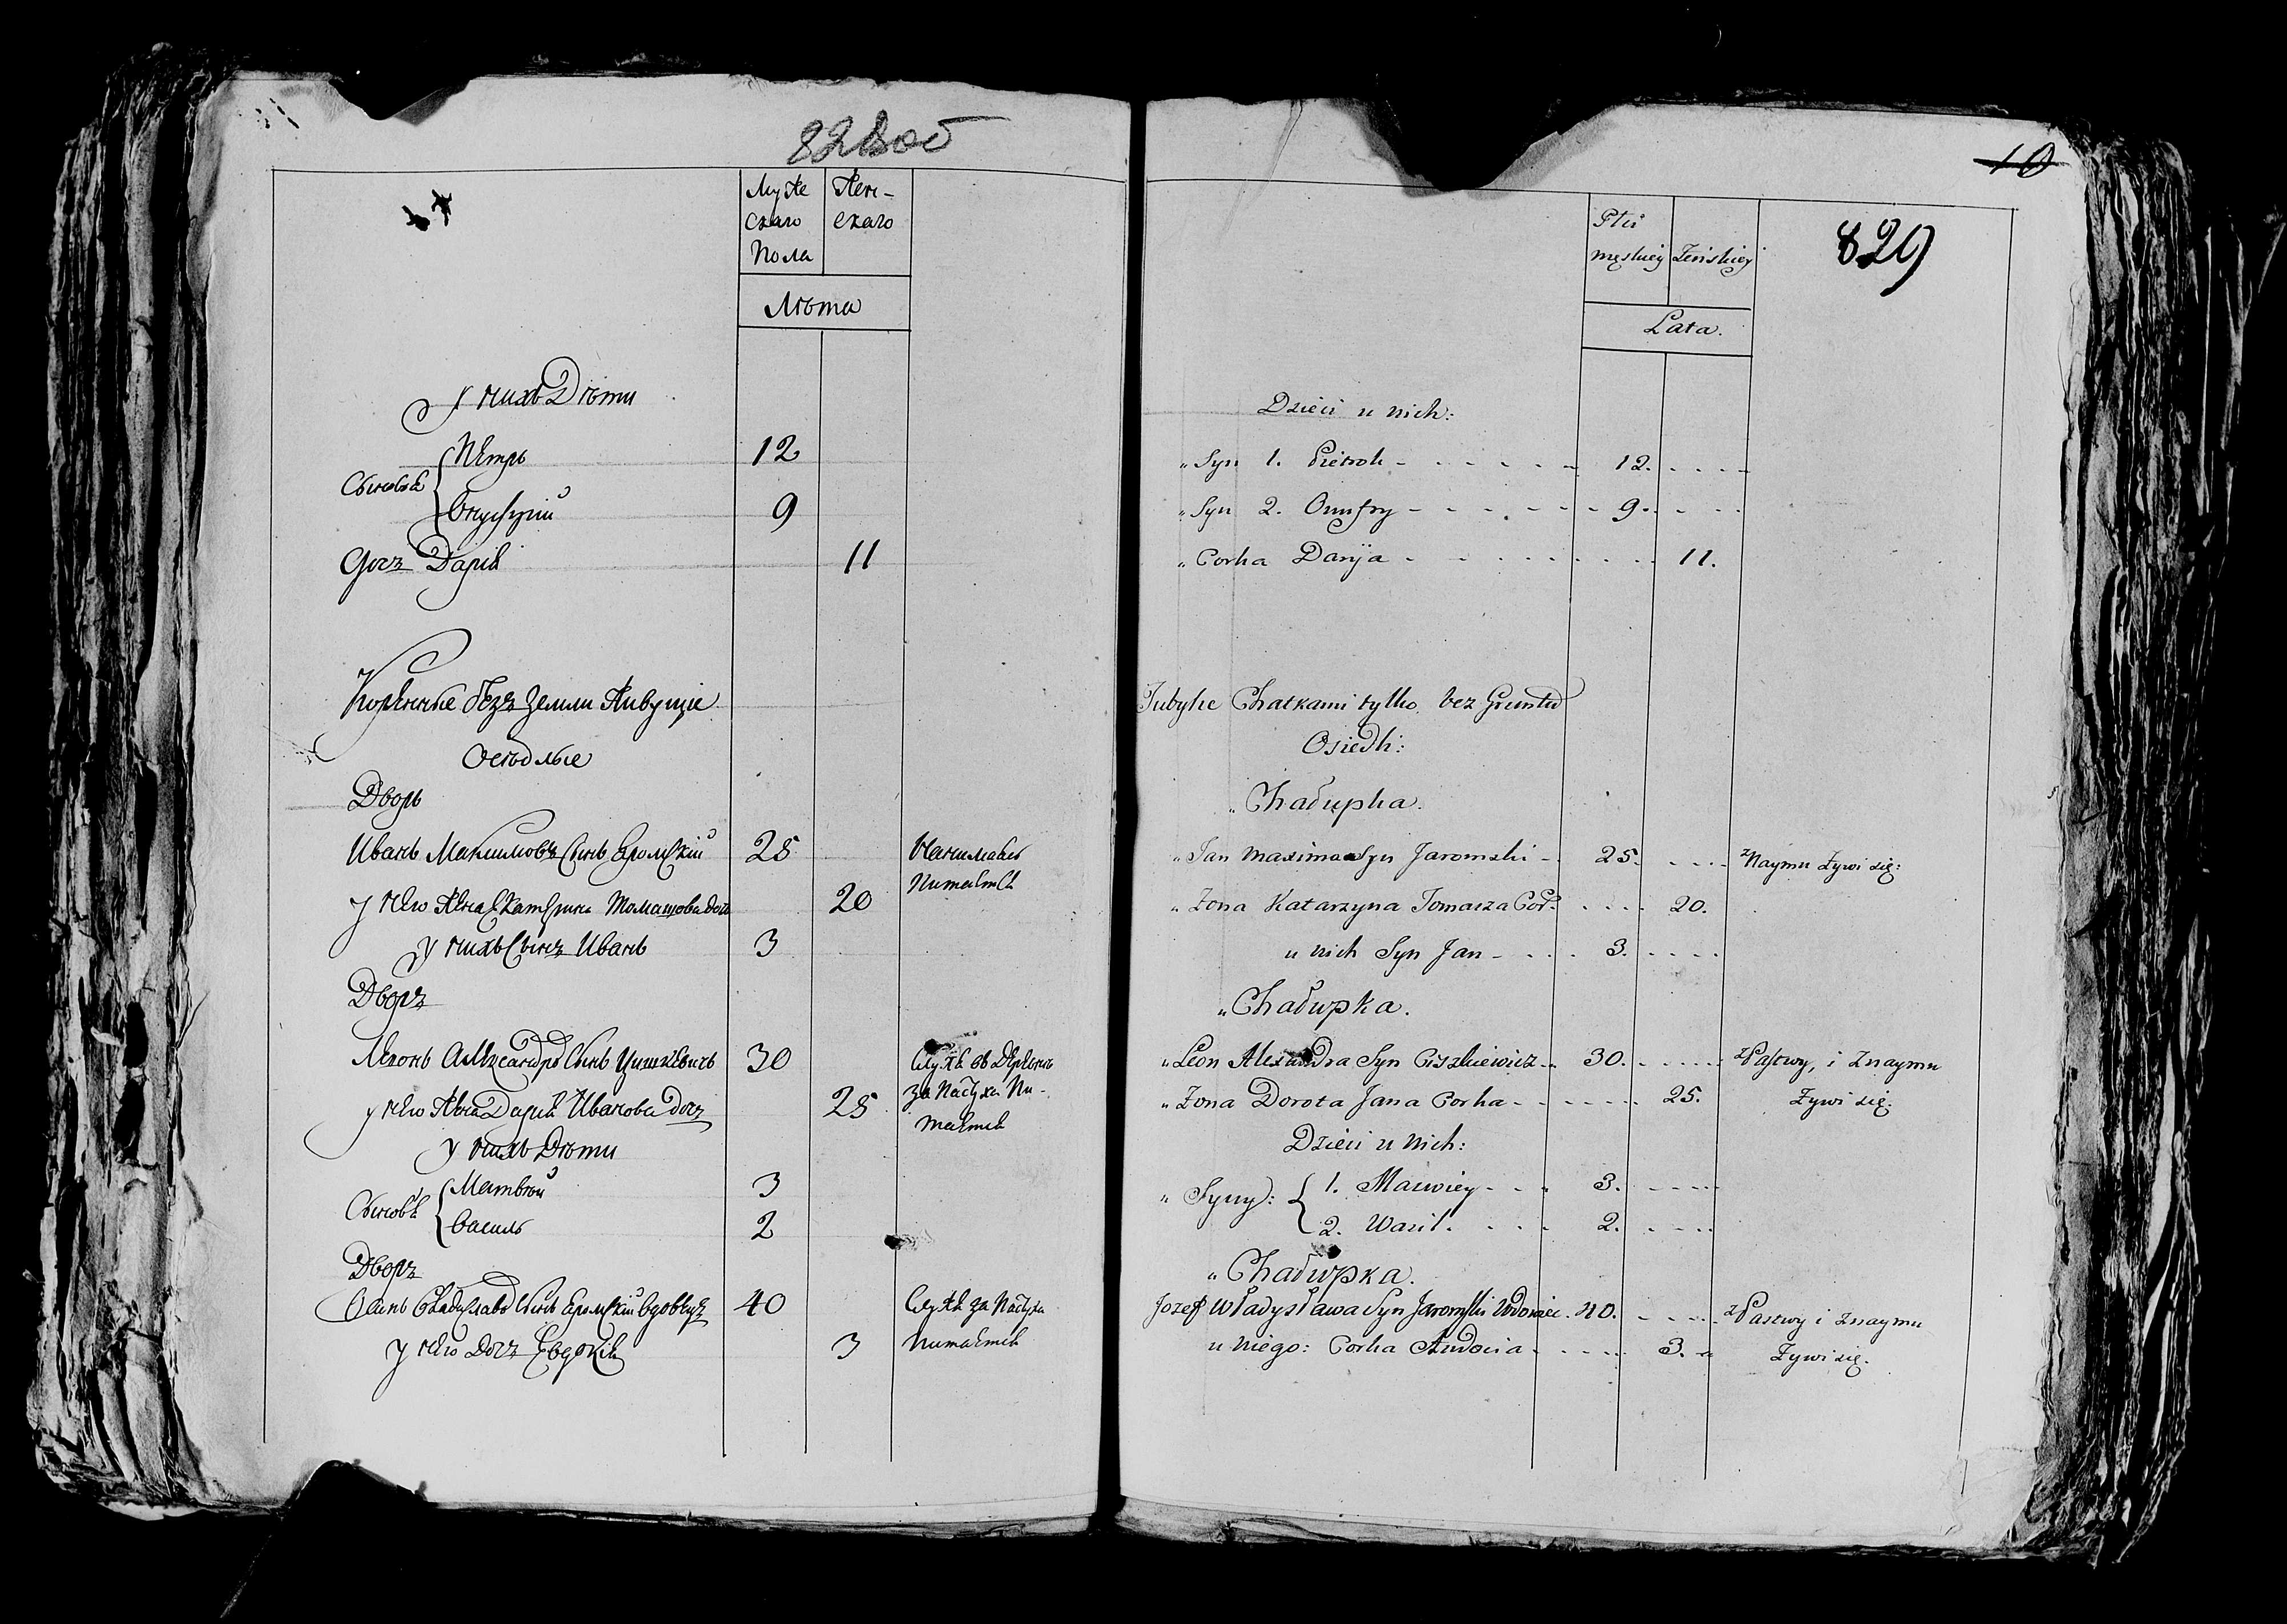 828 об
Мужескаго Пола
Женскаго
Лѣта
у нихъ Дѣти
Сыновья
Петръ 12
Онуфрій 9
Дочъ Дарія 11
Коренные безъ Земли Живущіе
Осѣдлые
Дворъ
Иванъ Максимовъ Сынъ Яромскій 25 Нанимаясь
питается
у него Жена Катерина Томашова дочь 20
у нихъ Сынъ Иванъ 3
Дворъ
Леонъ Александръ Сынъ Цишкевичъ 30 Служа въ Деревнѣ
за Пастуха Пи-
тается
у него Жена Дарія Иванова дочъ 25
у нихъ Дѣти
Сыновья
Матвѣй 3
Василь 2
Дворъ
Осипъ Владиславъ Сынъ Яромскій вдовецъ 40 Служа за Пастуха
питается
у него Дочъ Евдокія 3
10
829
Płci
męskiey Żeńskiey
Lata.
Dzieci u nich:
„ Syn 1. Pietroh - 12.
„ Syn 2. Onufry - 9.
„ Corka Daryja - 11.
Chatkami tylko bez Gruntu
Osiedli:
„ Chałupka.
„ Jan Maxima Syn Jaromski - 25. z Naymu Żywi się:
„ Żona Katarzyna Tomasza Cor: 20.
u nich Syn Jan - 3.
„ Chałupka.
„ Leon Alexandra Syn Ciszkiewicz - 30. z Pastwy, i z naymu
„ Żona Dorota Jana Corka - 25. Żywi się.
Dzieci u nich:
„ Syny:
1. Maciey - 3.
2. Wasil. 2.
„ Chałupka.
Jozef Władysława Syn Jaromski Wdowiec. 40. z Pastwy i z naymu
u niego: Corka Audocia - 3. Żywi się.